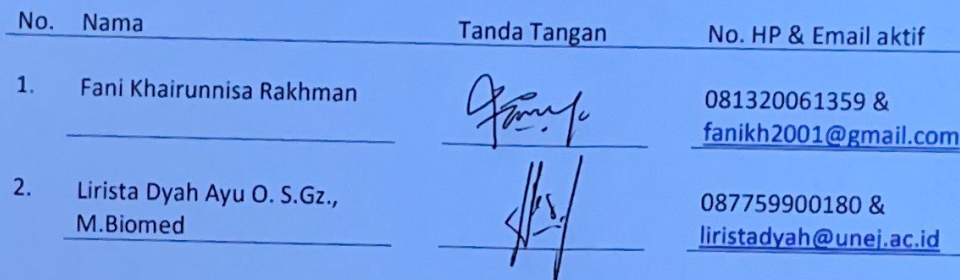 No. Nama Tanda Tangan No. HP & Email aktif
1. Fani Khairunnisa Rakhman 081320061359 &
fanikh2001@gmail.com
2. Lirista Dyah Ayu O. S.Gz., 087759900180 &
M.Biomed liristadyah@unej.ac.id